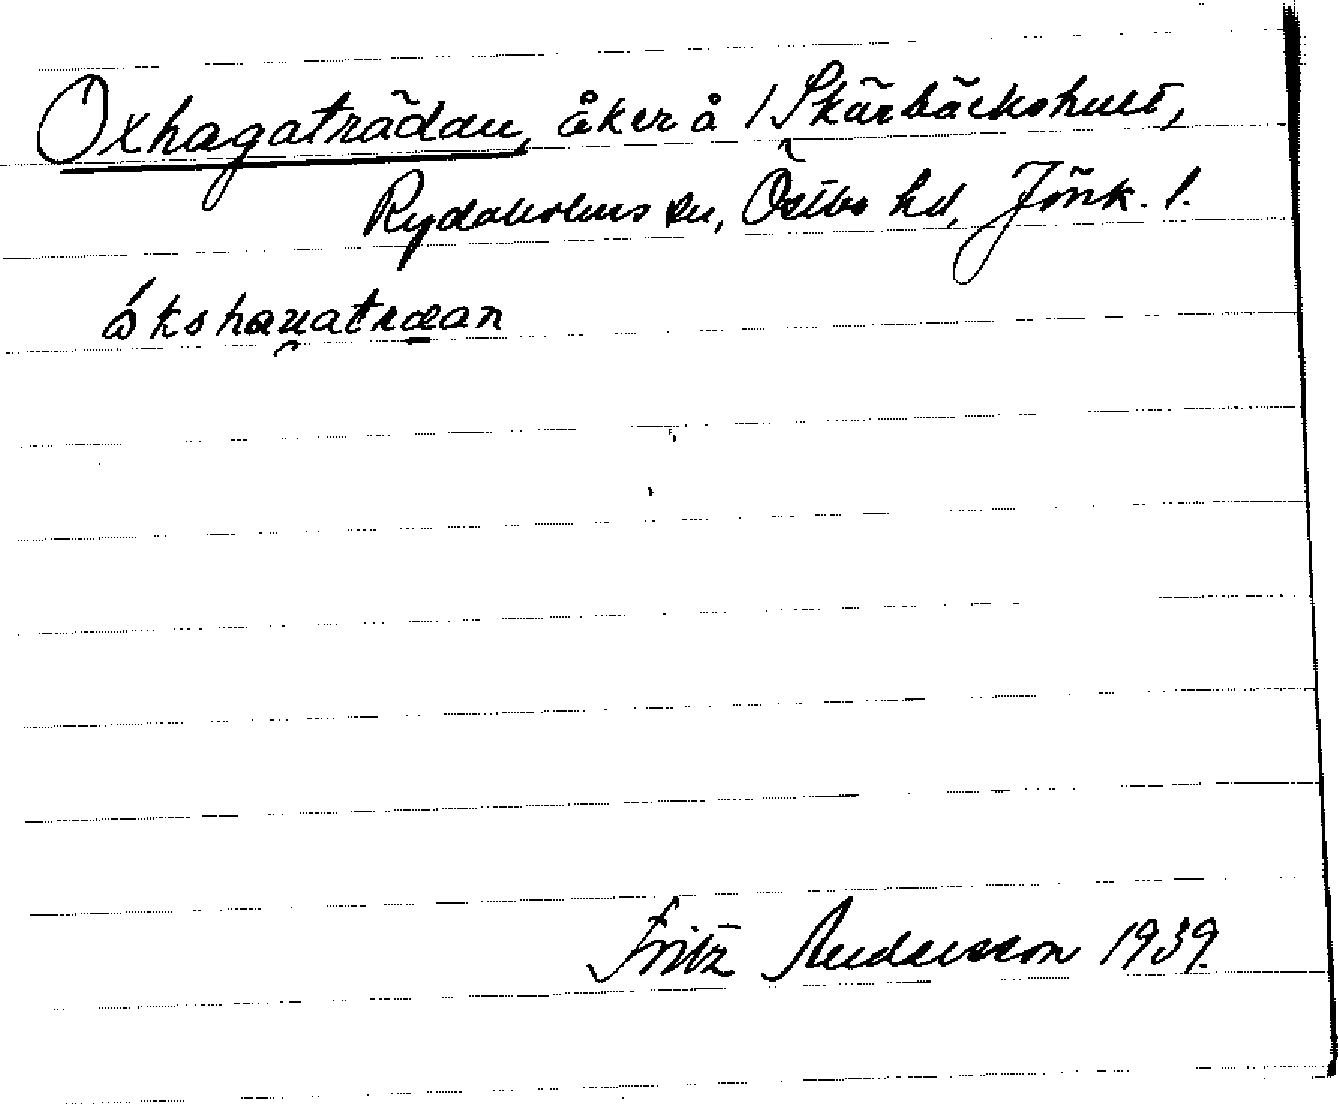 Oxhagaträdan, åker å 1 Skärbäckshult,
Rydaholms sn, Östbo hd, Jönk. l.
ókshau̯atræan
Fritz Andersson 1939.